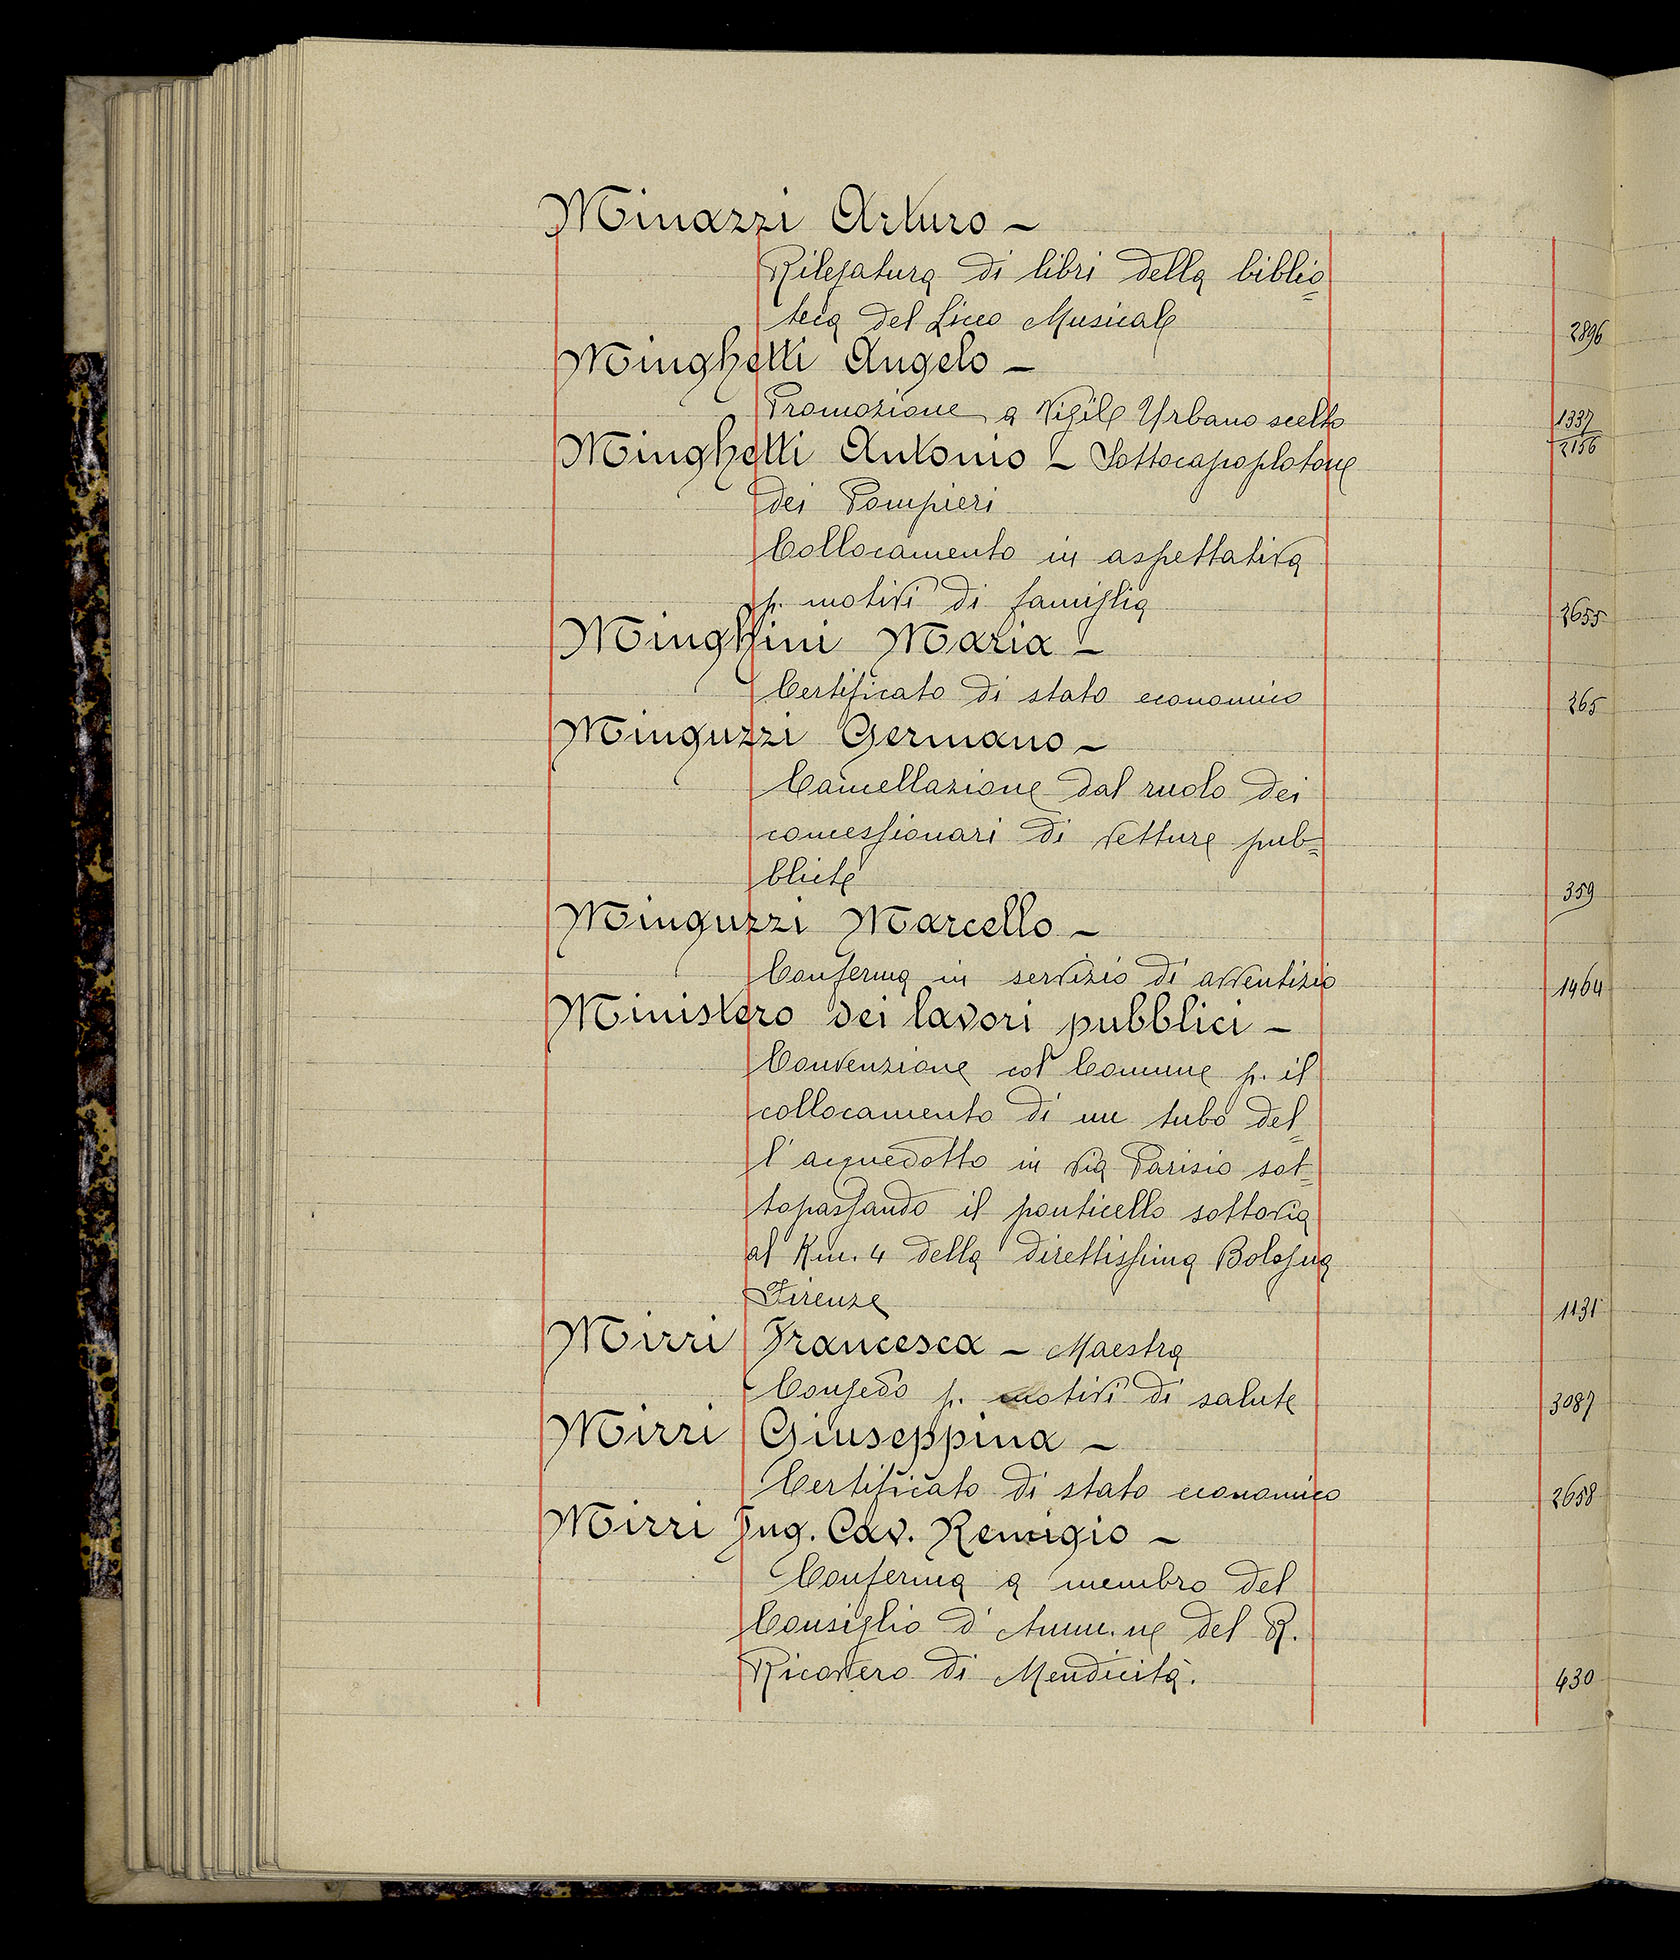 Minazzi Arturo –
Rilegatura di libri della biblio=
teca del Liceo Musicale 2896
Minghetti Angelo –
Promozione a Vigile Urbano scelto 1337
2156
Minghetti Antonio – Sottocapoplotone
dei Pompieri
Collocamento in aspettativa
p. motivi di famiglia 2655
Minghini Maria –
Certificato di stato economico 265
Minguzzi Germano –
Cancellazione dal ruolo dei
concessionari di vetture pub=
bliche 359
Minguzzi Marcello –
Conferma in servizio di avventizio 1464
Ministero dei lavori pubblici –
Convenzione col Comune p. il
collocamento di un tubo del=
l'acquedotto in via Parisio sot=
topassando il ponticello sottovia
al Km. 4 della direttissima Bologna
Firenze 1131
Mirri Francesca – Maestra
Congedo p. motivi di salute 3087
Mirri Giuseppina –
Certificato di stato economico 2658
Mirri Ing. Cav. Remigio –
Conferma a membro del
Consiglio d'Amm.ne del R.
Ricovero di Mendicità. 430